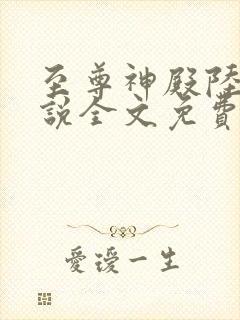 至尊神殿陸
說全文免費
愛瑷一生